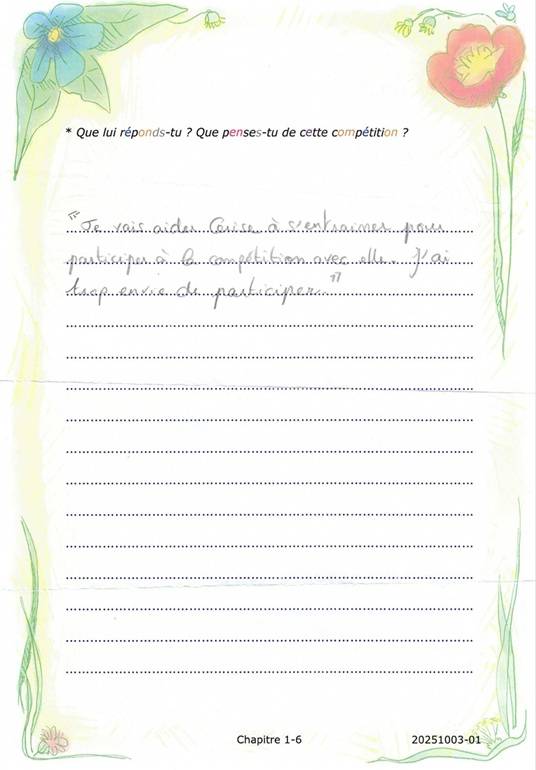 * Que lui réponds-tu ? Que penses-tu de cette compétition ?
"Je vais aider Cerise à s'entrainer pour
participer à la compétition avec elle. J'ai
trop envie de participer."
Chapitre 1-6
20251003-01